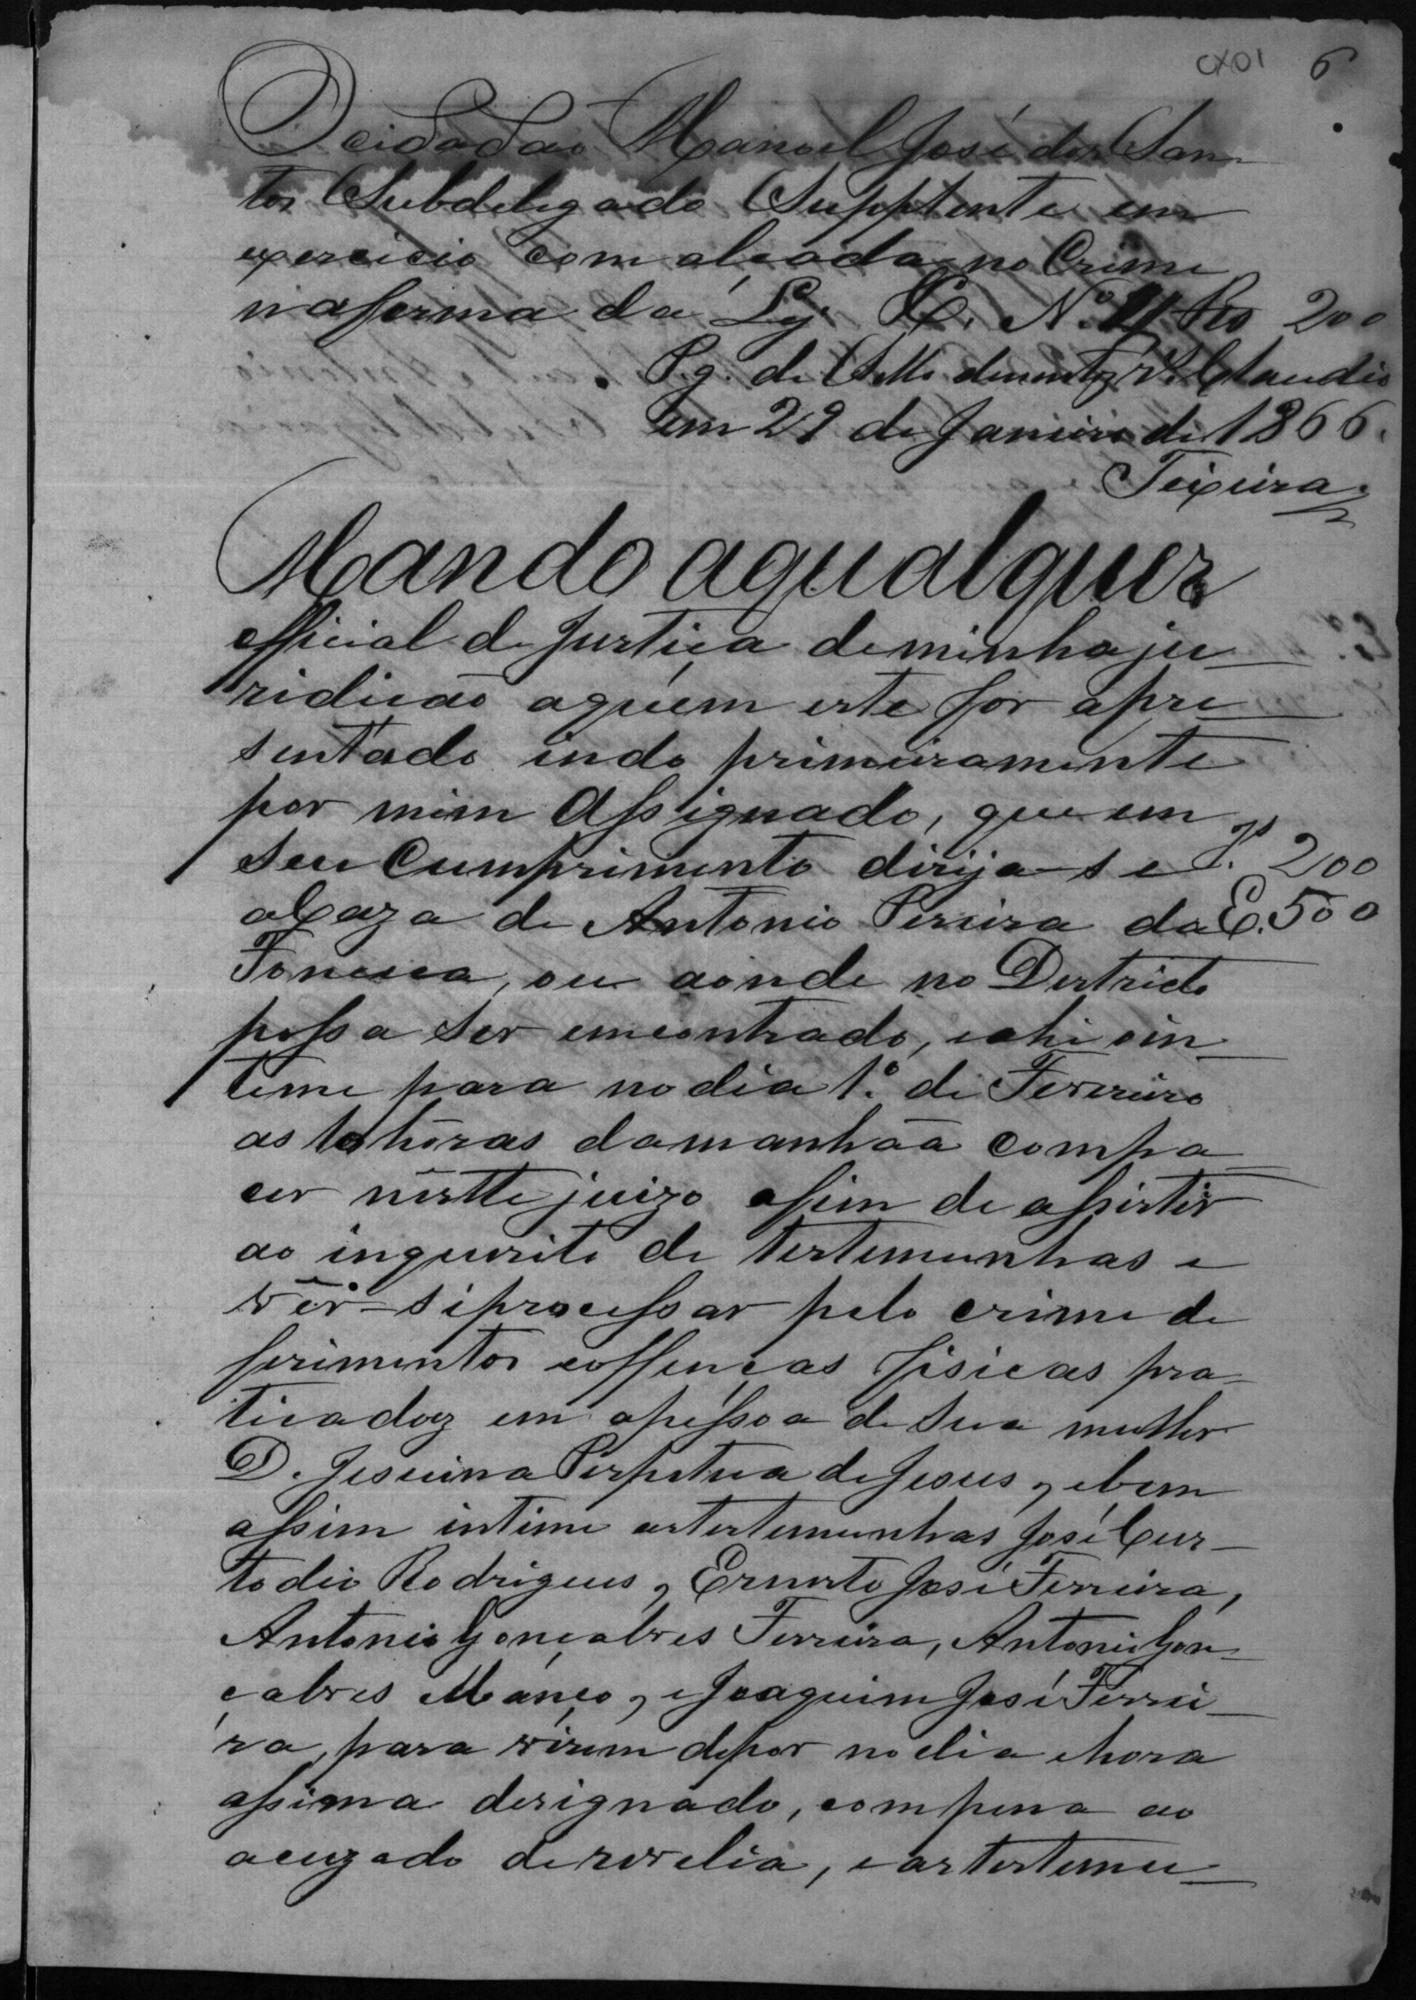 CX01 6
O cidadão Manoel José dos San
tos Subdelegado Supplente em
exercicio com alçada no Crime
na forma da Ley &. N. 21 Rs 200
Pg. de Sello duzentos r.s Claudio
em 29 de Janeiro de 1866.
Teixeira
Mando aqualquer
official de Justiça deminhaju
ridicão aquem este for apre
sentado indo primeiramente
por mim Assignado, que em
seu Cumprimento dirija-se J. 200
a Caza de Antonio Pereira da E. 500
Fonceca, ou aonde no Destricto
possa ser emcontrado, eahi oin
teme para nodia 1.º de Fevereiro
as 10 horas damanhãa compa
cer nestte juizo afim de assistir
ao inquerito de testemunhas e
vêr-siprocessar pelo crime de
ferimentos eoffenças fisicas pra
ticadoz em apessoa de sua mulher
D. Jesuina Perpetua de Jesus, ebem
assim intime astestemunhas José Cus
todio Rodrigues, Ernesto José Ferreira,
Antonio Gonçalves Ferreira, Antonio Gon
calves Manço, eJoaquim José Ferrei
ra, para virem depor nodia ehora
assima designado, compena ao
acuzado derevelia, eastestemu